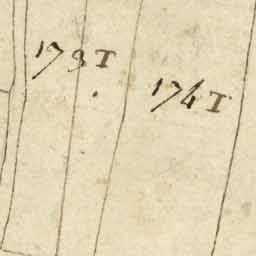 173T
174T